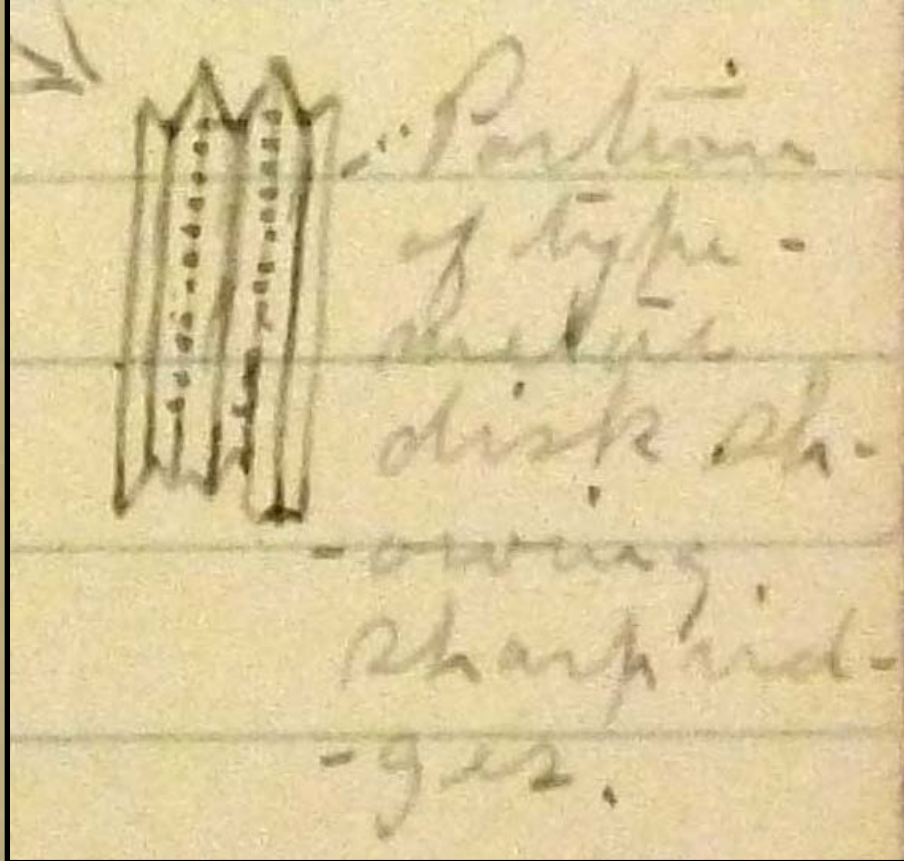 Portion
of type-
metal
disk sh-
-owing
sharp rid-
-ges.